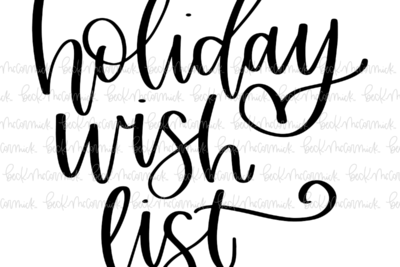 holiday
wish
list